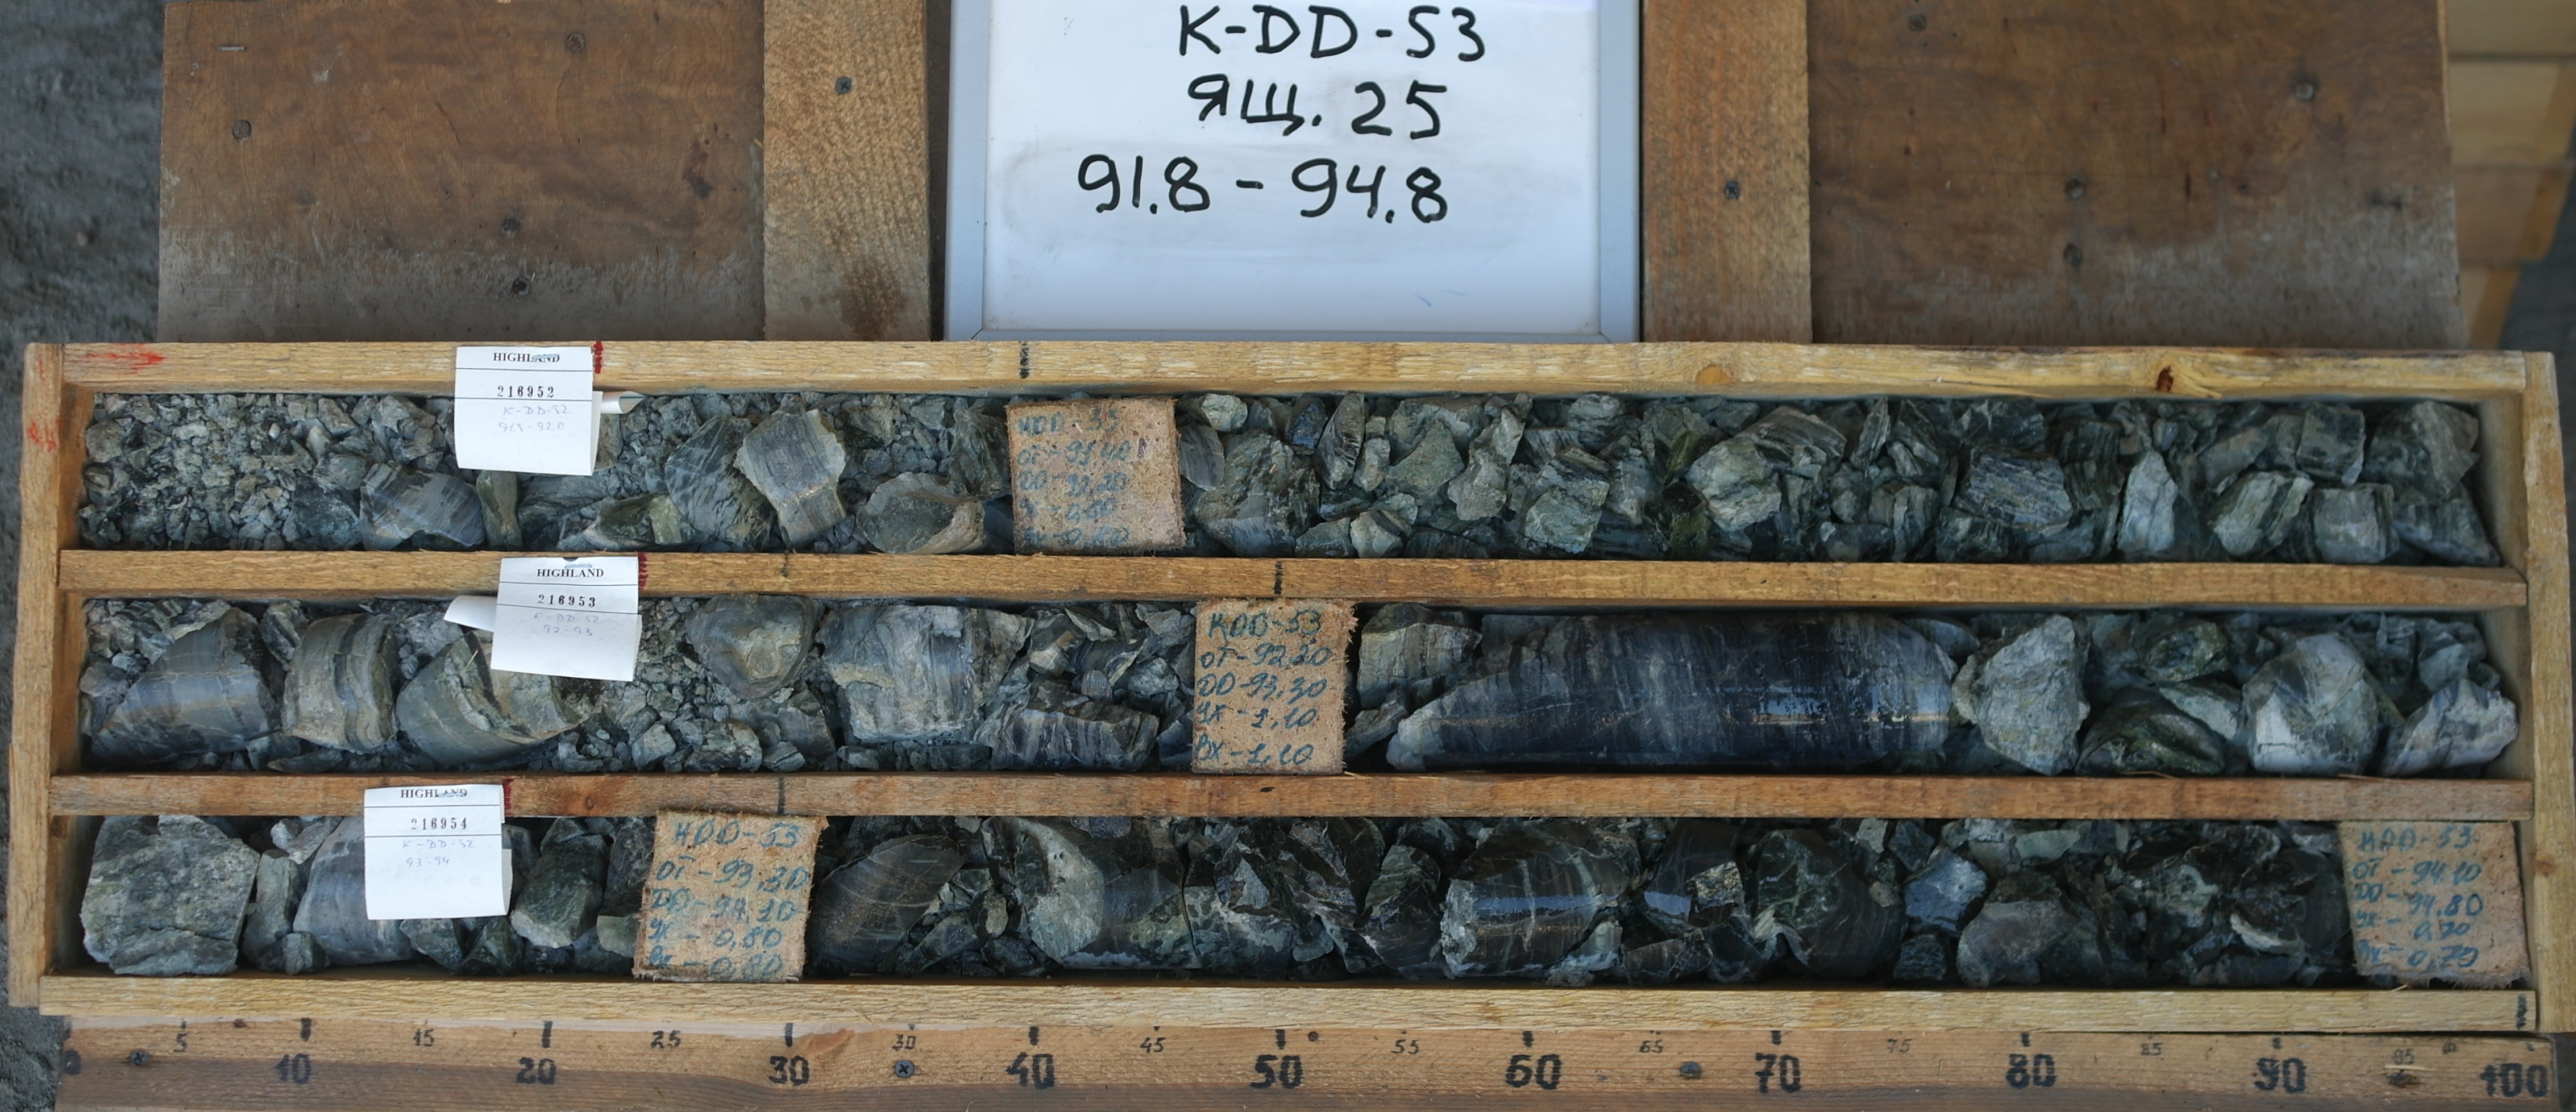 K-DD-53
ЯЩ. 25
91.8 - 94.8
HIGHLAND
216952
K-DD-52
91.8-92.0
КДD-53
ДО-92,20
HIGHLAND
216953
K-DD-52
92-93
KDD-53
ОТ-92,20
ДО-93,30
УХ-1,10
ВХ-1,10
HIGHLAND
216954
K-DD-52
93-94
КDD-53
ОТ-93,30
ДО-94,10
УХ-0,80
ВХ-0,80
КDD-53
ОТ-94,10
ДО-94,80
УХ-0,70
ВХ-0,70
5
10
15
20
25
30
30
40
45
50
55
60
65
70
75
80
85
90
95
100